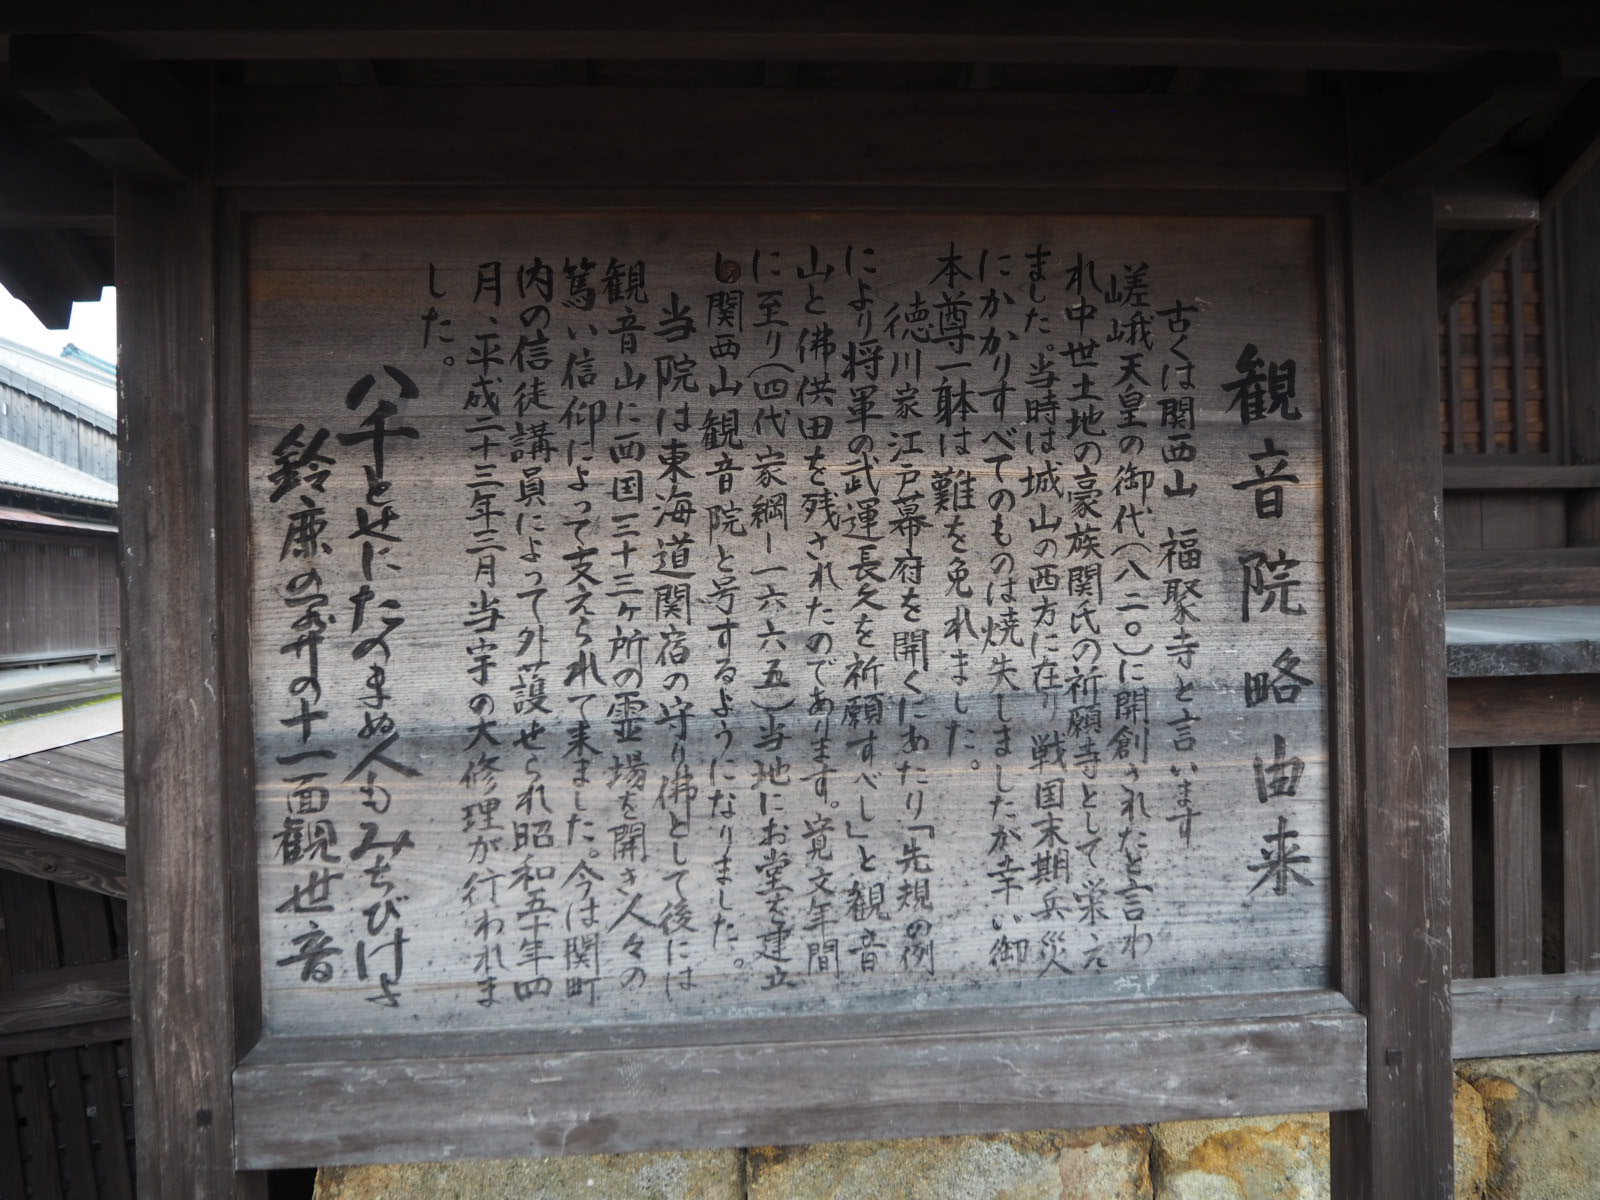 観音院略由来
古くは関西山　福聚寺と言います
嵯峨天皇の御代（八二〇）に開創されたと言わ
れ中世土地の豪族関氏の祈願寺として栄え
ました。当時は城山の西方に在り戦国末期兵災
にかかりすべてのものは焼失しましたが幸い御
本尊一躰は難を免れました。
徳川家江戸幕府を開くにあたり「先規の例
により将軍の武運長久を祈願すべし」と観音
山と佛供田を残されたのであります。寛文年間
に至り（四代家綱ー一六六五）当地にお堂を建立
し関西山観音院と号するようになりました。
当院は東海道関宿の守り佛として後には
観音山に西国三十三ヶ所の霊場を開き人々の
篤い信仰によって支えられて来ました。今は関町
内の信徒講員によって外護せられ昭和五十年四
月、平成二十三年三月当字の大修理が行われま
した。
八千とせにたのまぬ人もみちびけよ
鈴鹿の の十一面観世音